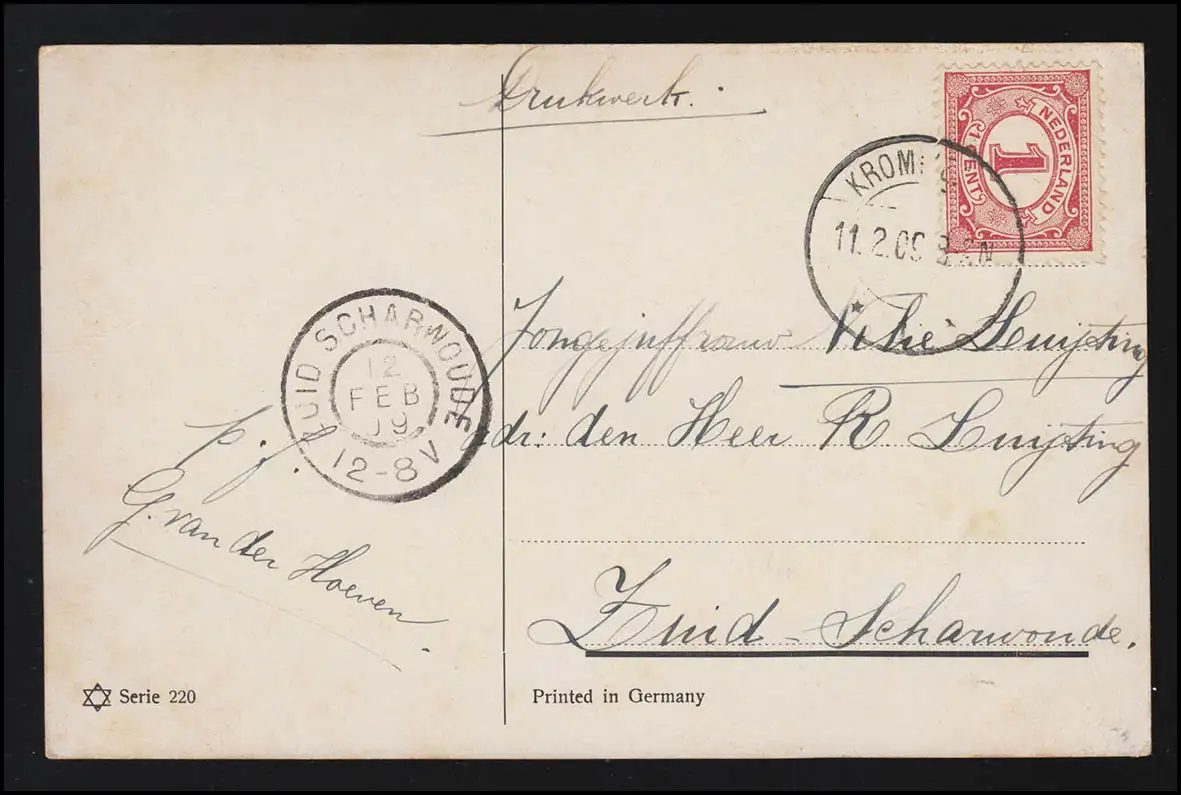 Drukwerk.
NEDERLAND
1
1 CENT
KROM
11.2.09 8
Jongejuffrouw Nelie Luijting
adr: den Heer R. Luijting
Zuid-Scharwoude.
ZUID SCHARWOUDE
12
FEB
09
12-8V
p. f.
G. van der Hoeven.
Serie 220
Printed in Germany